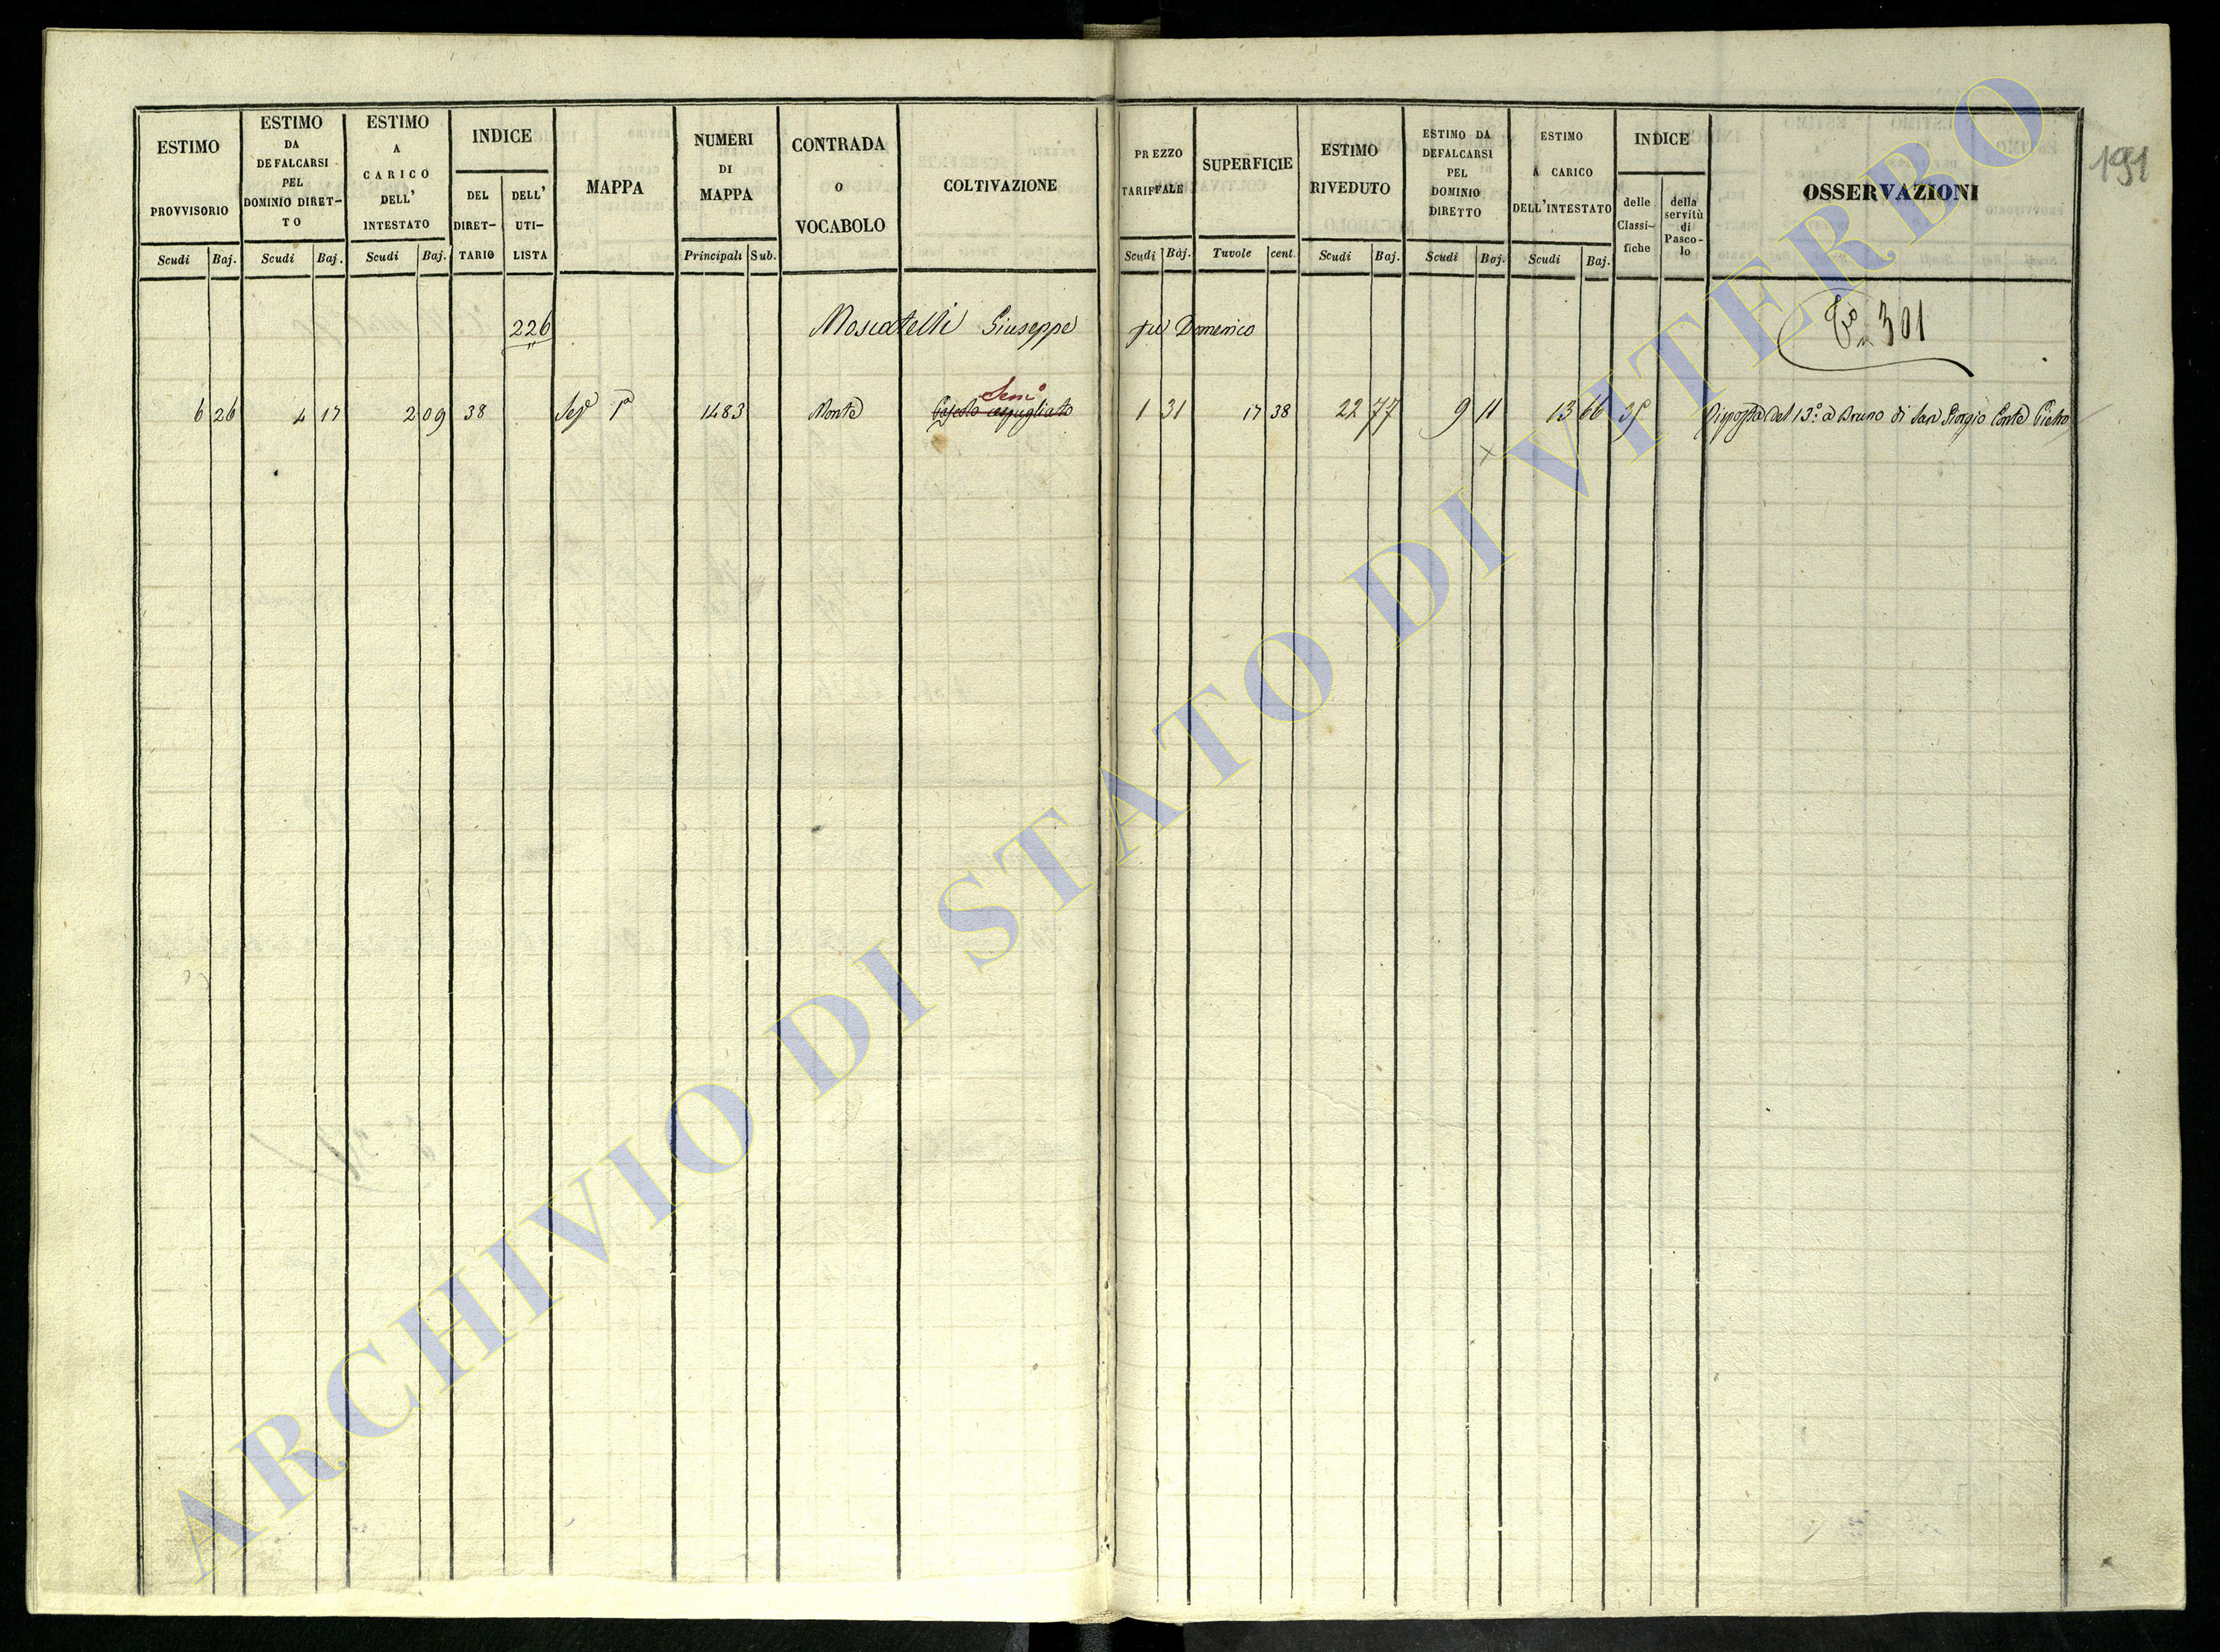 191
ESTIMO PROVVISORIO
Scudi Baj.
ESTIMO DA DEFALCARSI PEL DOMINIO DIRET- TO
Scudi Baj.
ESTIMO A CARICO DELL' INTESTATO
Scudi Baj.
INDICE
DEL DIRET- TARIO
DELL' UTI- LISTA
MAPPA
NUMERI DI MAPPA
Principali Sub.
CONTRADA O VOCABOLO
COLTIVAZIONE
PREZZO TARIFFALE
Scudi Baj.
SUPERFICIE
Tavole cent.
ESTIMO RIVEDUTO
Scudi Baj.
ESTIMO DA DEFALCARSI PEL DOMINIO DIRETTO
Scudi Baj.
ESTIMO A CARICO DELL'INTESTATO
Scudi Baj.
INDICE
delle Classi- fiche
della servitù di Pasco- lo
OSSERVAZIONI
226 Moscatelli Giuseppe fu Domenico 301
Sem.o
6 26 4 17 2 09 38 Sez.e 1a 1483 Monte Pascolo cespugliato 1 31 17 38 22 77 9 11 13 66 35 Risposta del 13.o a Bruno di San Giorgio Conte Pietro
ARCHIVIO DI STATO DI VITERBO